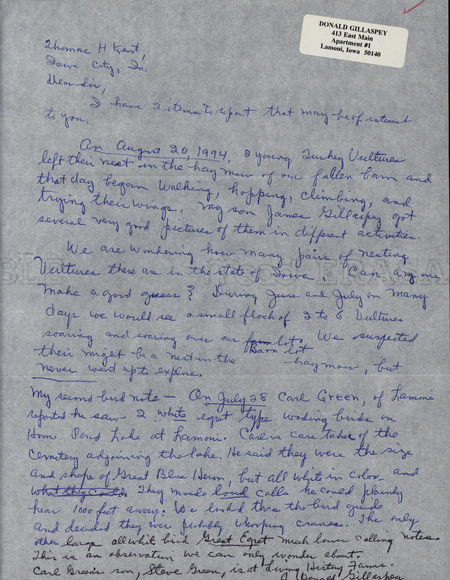 DONALD GILLASPEY
413 East Main
Apartment #1
Lamoni, Iowa 50140
Thomas H Kent,
Iowa City, Ia.
Dear Sir,
I have 2 items to report that may be of interest
to you.
On August 20, 1994, 2 young Turkey Vultures
left their nest in the hay mow of our fallen barn and
that day began walking, hopping, climbing, and
trying their wings. My son James Gillaspey got
several very good pictures of them in different activities.
We are wondering how many pairs of nesting
Vultures there are in the state of Iowa? Can any one
make a good guess? During June and July on many
days we would see a small flock of 2 to 6 Vultures
soaring and soaring over our barn lot. We suspected
their might be a nest in the hay mow, but
never went up to explore.
My second bird note - On July 28 Carl Green, of Lamoni
reported he saw - 2 white egret type wading birds on
Home Pond Lake at Lamoni. Carl is care taker of the
Cemetery adjoining the lake. He said they were the size
and shape of Great Blue Heron, but all white in color - and
what they They made loud calls he could plainly
hear 1000 feet away. We looked thru the bird guide
and decided they were probably whooping cranes. The only
other large all white bird Great Egret much lower calling notes.
This is an observation we can only wonder about.
Carl Green's son, Steve Green, is at Living History Farms.
J. Donald Gillaspey